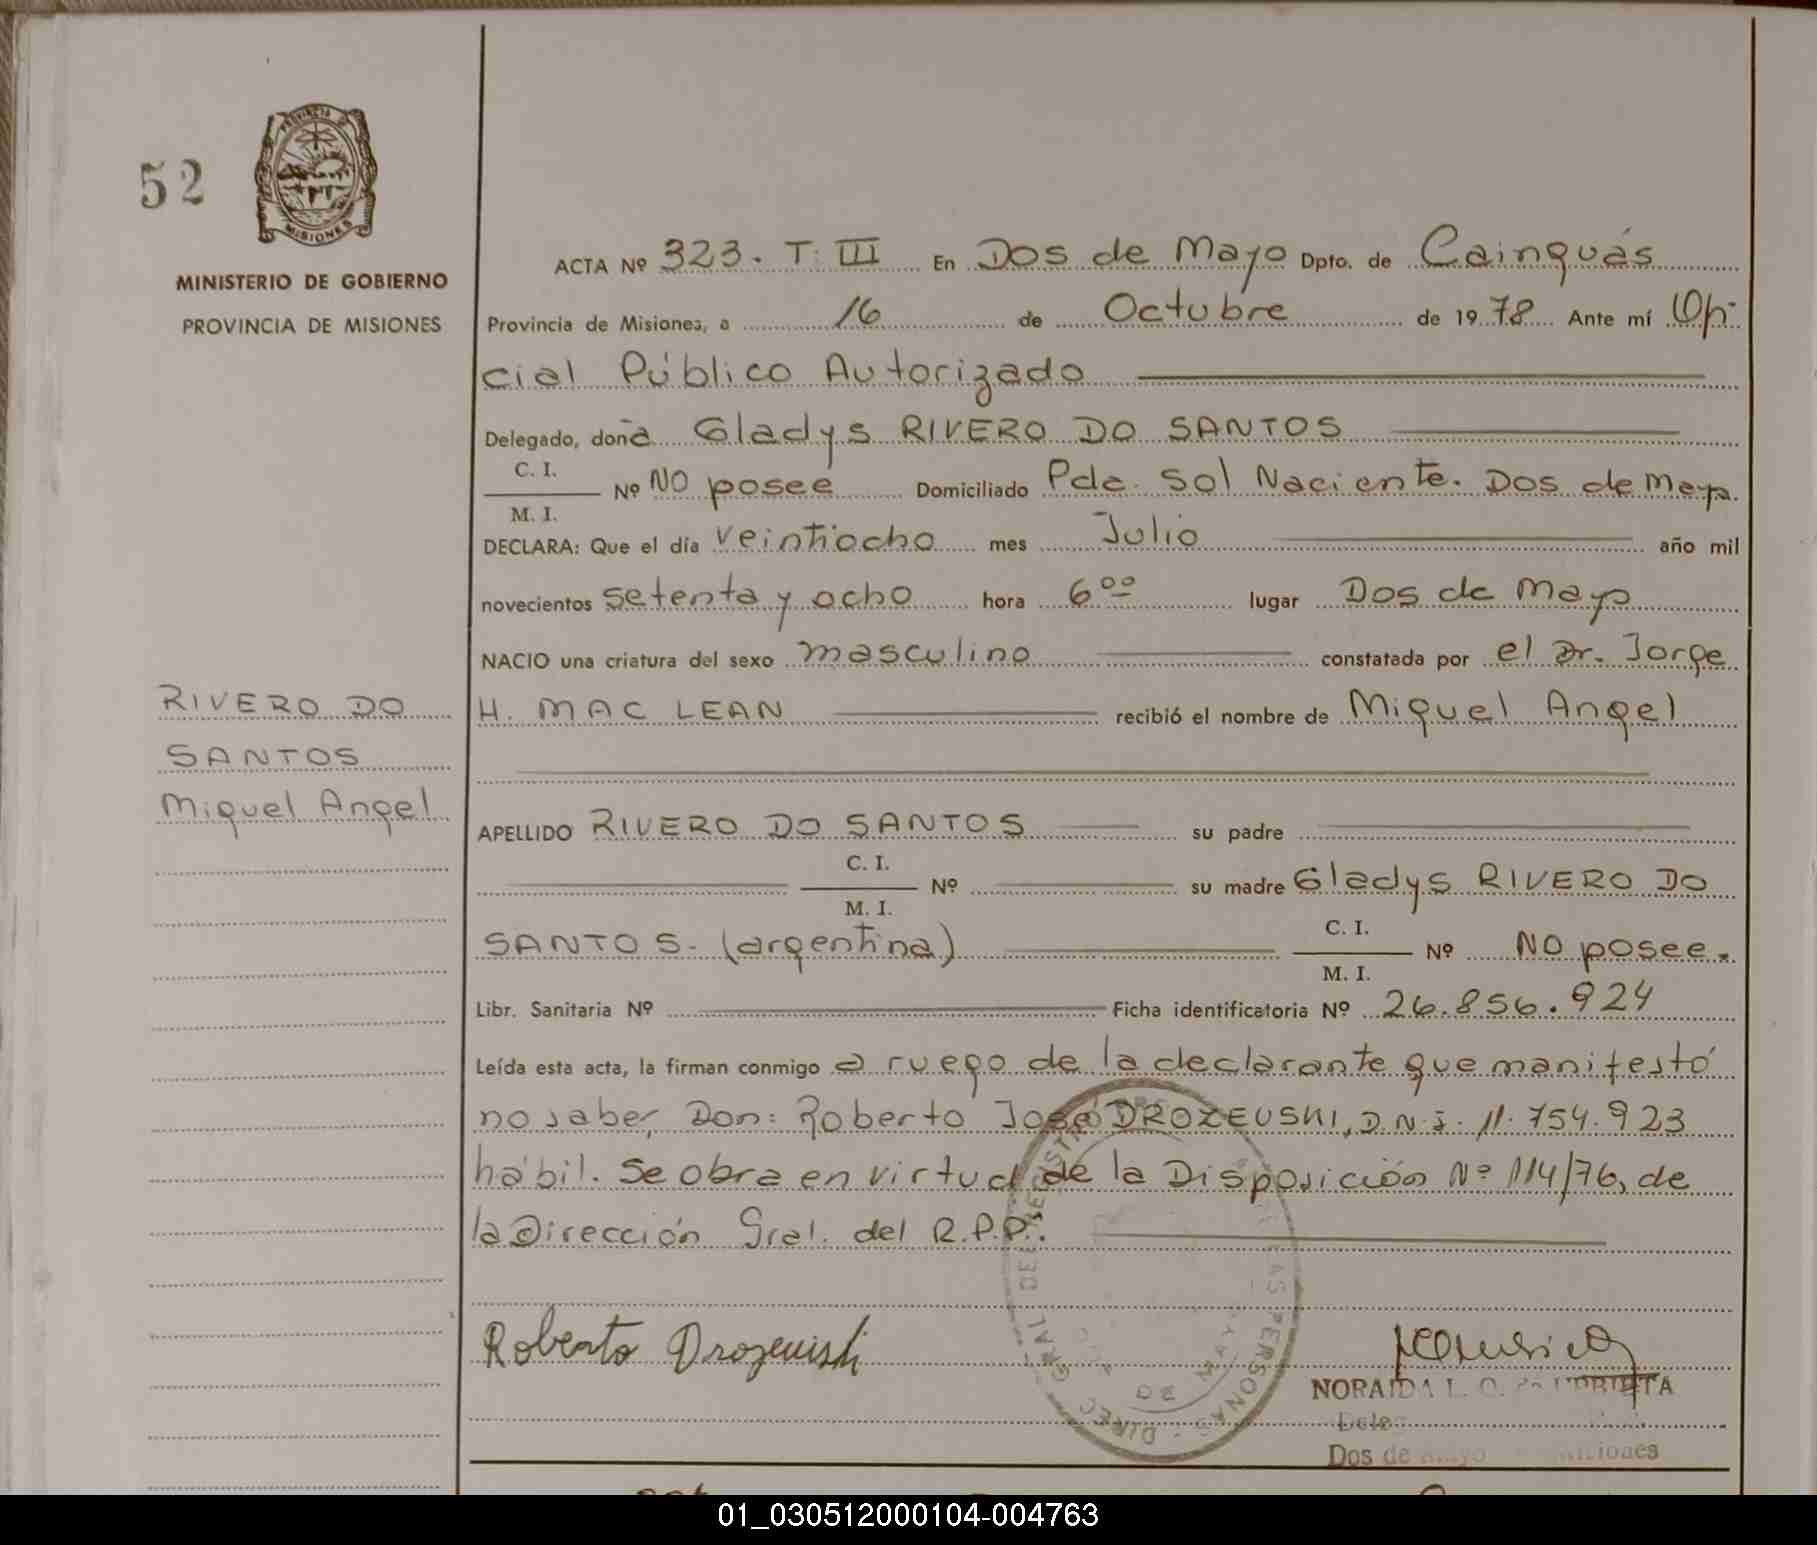 52
PROVINCIA DE
MISIONES
MINISTERIO DE GOBIERNO
PROVINCIA DE MISIONES
RIVERO DO
SANTOS
Miguel Angel
ACTA Nº 323. T. III En Dos de Mayo Dpto. de Cainguás
Provincia de Misiones, a 16 de Octubre de 1978 Ante mí Ofi-
cial Público Autorizado
Delegado, doña Gladys RIVERO DO SANTOS
C. I.
Nº NO posee Domiciliado Pdc. Sol Naciente. Dos de Mayo.
M. I.
DECLARA: Que el día veintiocho mes Julio año mil
novecientos setenta y ocho hora 6 00 lugar Dos de Mayo
NACIO una criatura del sexo masculino constatada por el Dr. Jorge
H. MAC LEAN recibió el nombre de Miguel Angel
APELLIDO RIVERO DO SANTOS su padre
C. I.
Nº su madre Gladys RIVERO DO
M. I.
SANTOS. (argentina)
C. I.
Nº NO posee.
M. I.
Libr. Sanitaria Nº Ficha identificatoria Nº 26.856.924
Leída esta acta, la firman conmigo a ruego de la declarante que manifestó
no saber, Don: Roberto José DROZEUSKI, D.N.I. 11.754.923
hábil. Se obra en virtud de la Disposición Nº 114/76, de
la Dirección Gral. del R.P.P.
Roberto Drozeuski
DIREC. GRAL. DEL REGISTRO DE LAS PERSONAS
NORAIDA L. O.
Dos de Mayo Misiones
01_030512000104-004763